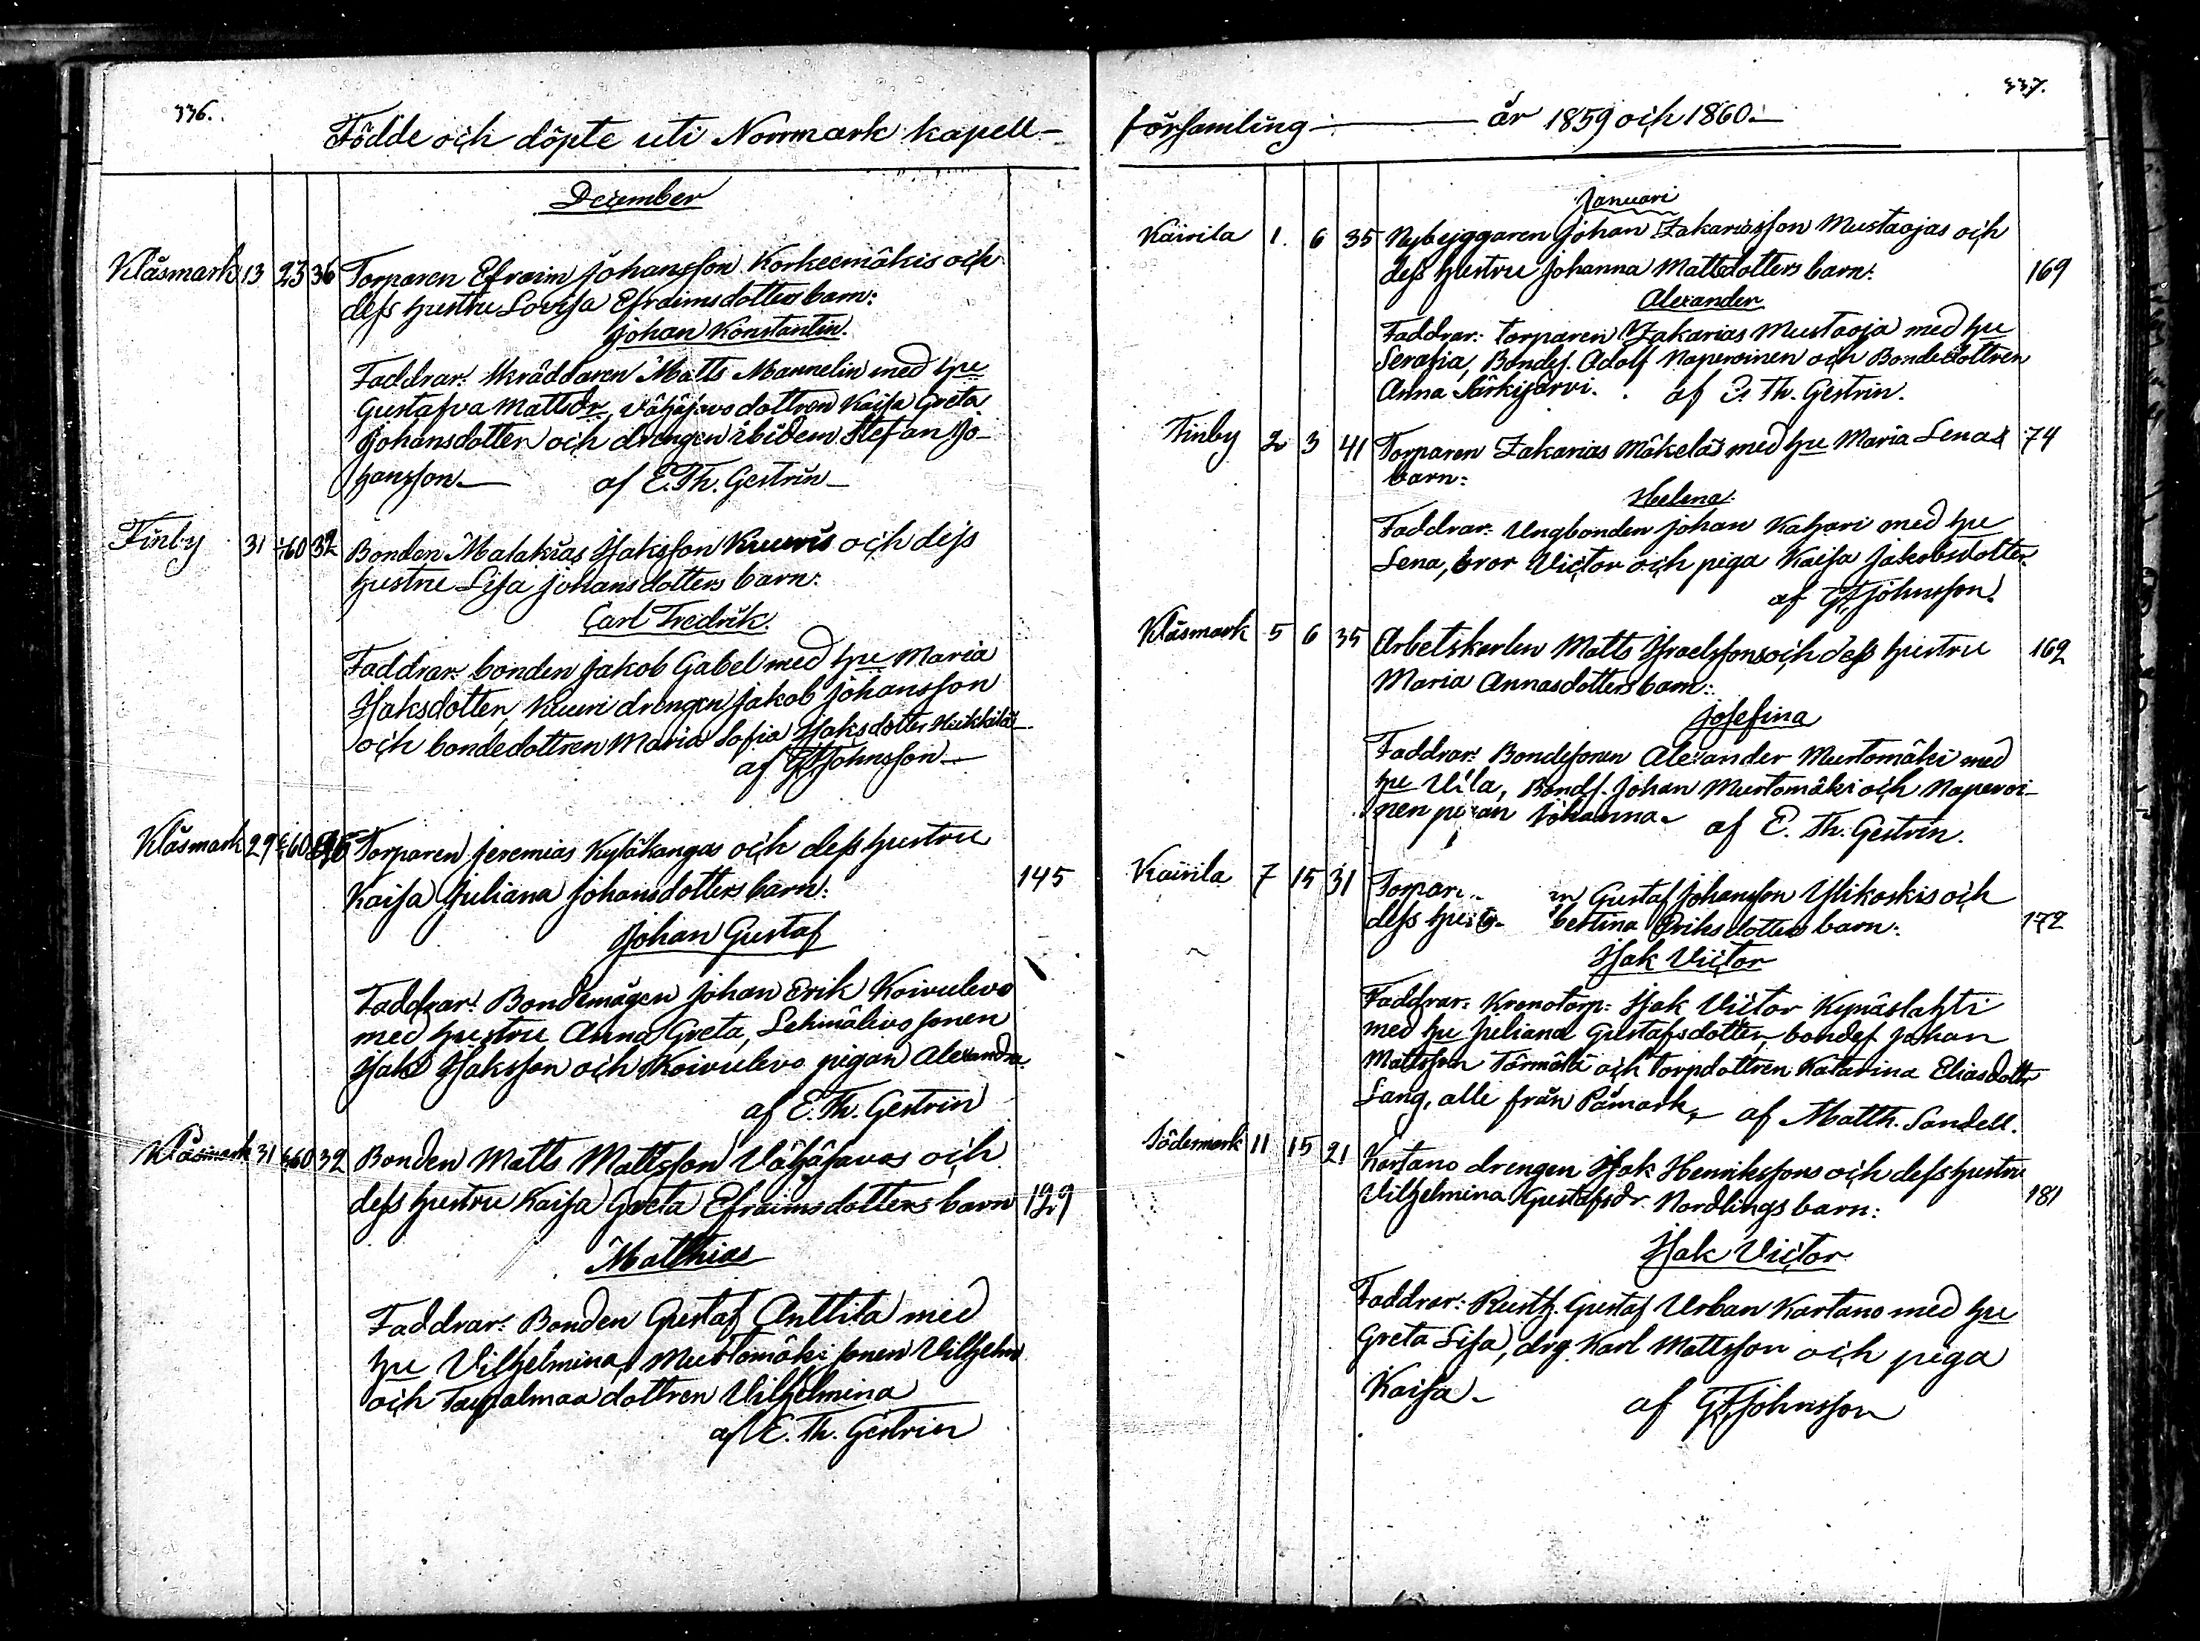 336.
Födde och döpte uti Norrmark kapell-
December
Klåsmark 13 23 36 Torparen Efraim Johansson Korkeemäkis och
dess hustru Lovisa Efraimsdotters barn:
Johan Konstantin.
Faddrar: skräddaren Matts Mannelin med hu
Gustafva Mattsdr, Vähäjavo dottren Kaisa Greta
Johansdotter och drengen ibidem Stefan Jo-
hansson. af E. Th. Gestrin
Finby 31 60 32 Bonden Malakias Isaksson Kuuris och dess
hustru Lisa Johansdotters barn:
Carl Fredrik.
Faddrar: bonden Jakob Gabel med hu Maria
Isaksdotter, Kuuri drengen Jakob Johansson
och bondedottren Maria Sofia Isaksdotter Heikkilä
af G F Johnsson
Klåsmark 29 60 Torparen Jeremias Kyläkangas och dess hustru
Kaisa Juliana Johansdotters barn: 145
Johan Gustaf
Faddrar: Bondemågen Johan Erik Koivulevo
med hustru Anna Greta, Lehmälivo sonen
Isak Isaksson och Koivulevo pigan Alexandra
af E. Th. Gestrin
Klåsmark 31 60 32 Bonden Matts Mattsson Vähäjavos och
dess hustru Kaisa Greta Efraimsdotters barn 129
Matthias
Faddrar: Bonden Gustaf Anttila med
hu Vilhelmina, Murtomäki sonen Vilhelm
och Taipalmaa dottren Vilhelmina
af E. Th. Gestrin
337.
församling år 1859 och 1860.
Januari
Kairila 1. 6 35 Nybyggaren Johan Zakariasson Mustaojas och
dess hustru Johanna Mattsdotters barn: 169
Alexander
Faddrar: torparen Zakarias Mustaoja med hu
Serafia, Bondes. Adolf Naperoinen och Bondedottren
Anna Särkijärvi. af E. Th. Gestrin.
Finby 2 3 41 Torparen Zakarias Mäkeläs med hu Maria Lenas 74
barn:
Helena.
Faddrar: Ungbonden Johan Kahari med hu
Lena, bror Victor och piga Kaisa Jakobsdotter.
af G F Johnsson.
Klåsmark 5 6 35 Arbetskarlen Matts Israelssons och dess hustru 162
Maria Annasdotters barn:
Josefina
Faddrar: Bondesonen Alexander Murtomäki med
hu Ulla, Bonds. Johan Murtomäki och Naperoi-
nen pigan Johanna. af E. Th. Gestrin.
Kairila 7 15 31 Gustaf Johansson Ylikoskis och
dess bertina Eriksdotters barn: 172
Isak Victor
Faddrar: Kronotorp: Isak Victor Kynäslahti
med hu Juliana Gustafsdotter, bondes Johan
Mattsson Törmälä och torpdottren Katarina Eliasdottr
Lang, alle från Påmark, af Matth. Sandell.
Södermark 11 15 21 Kartano drengen Isak Henrikssons och dess hustru
Vilhelmina Gustafsdr. Nordlings barn: 181
Isak Victor
Faddrar: Rusth. Gustaf Urban Kartano med hu
Greta Lisa, drg. Karl Mattsson och piga
Kaisa. af G F Johnsson